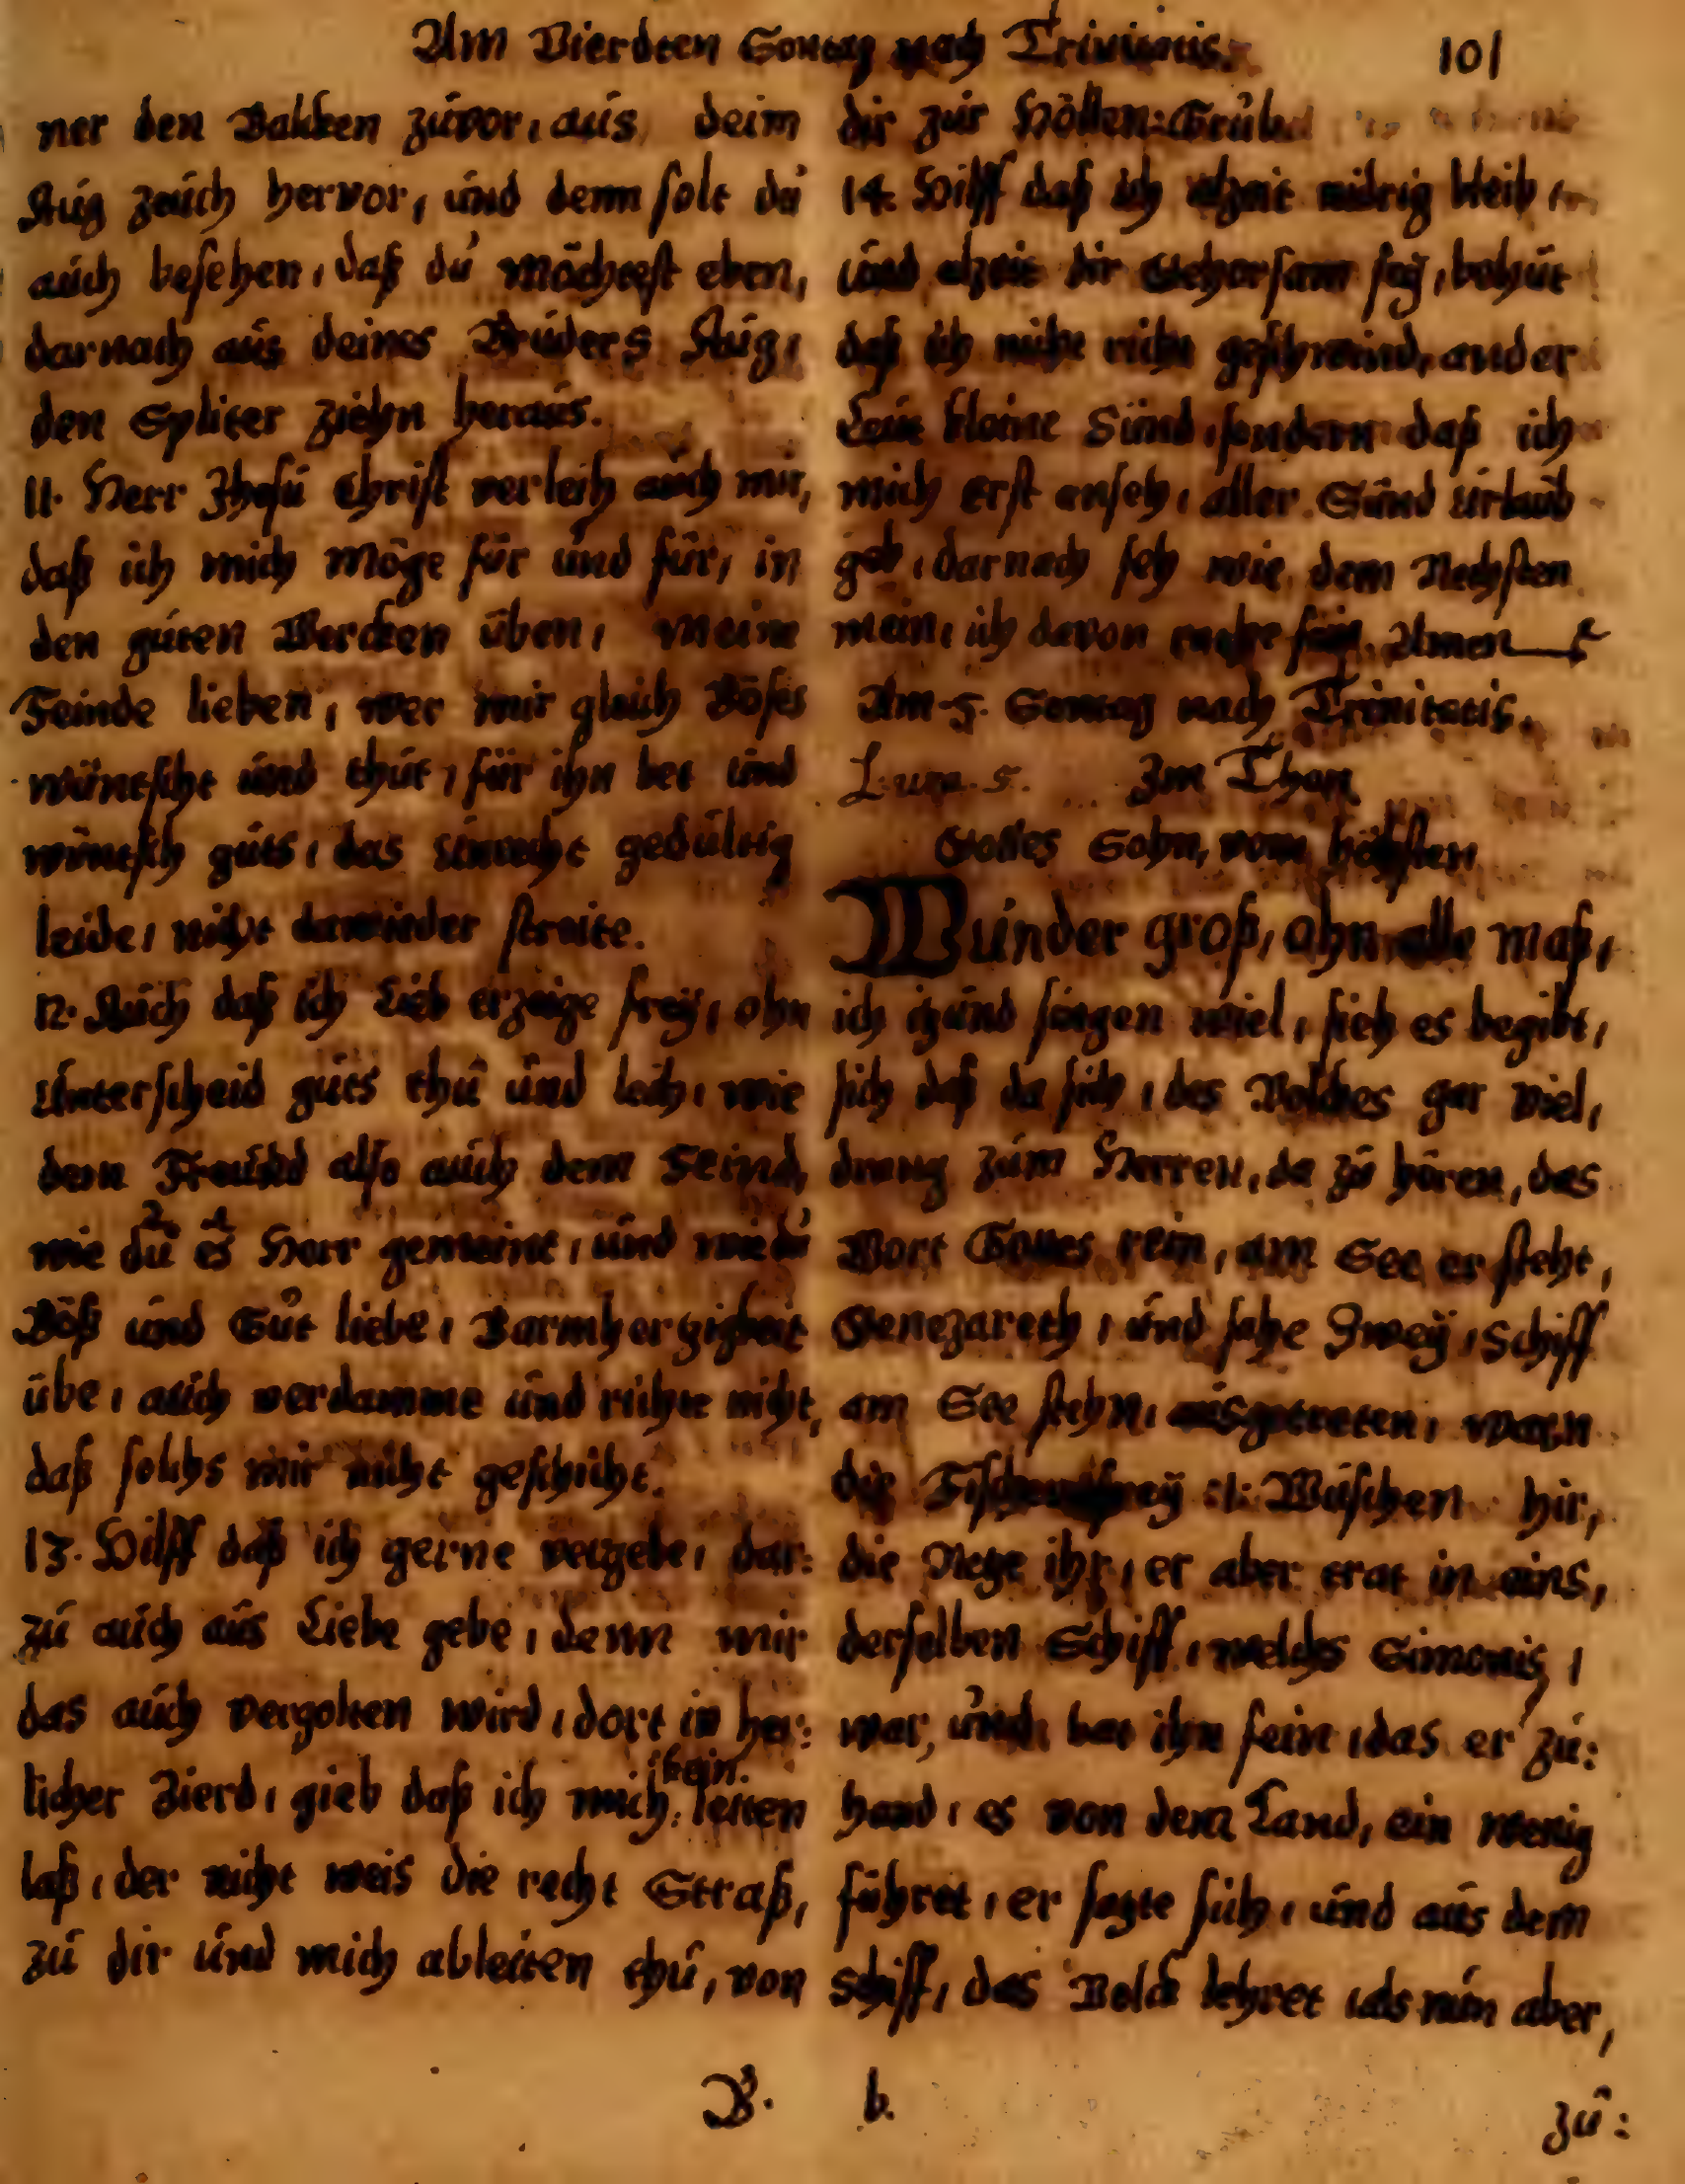 Am Vierdten Sontag nach Trinitatis. 101
ner den Balcken zuvor, aus deim
Aug zeuch hervor, und denn solt du
auch besehen, daß du möchtest eben,
darnach aus deines Bruders Aug,
den Spliter ziehn heraus.
11. Herr Jhesu Christ verleih auch mir,
daß ich mich möge für und für, in
den guten Wercken üben, meine
Feinde lieben, wer mir gleich Böses
wüntscht und thut, für ihn bet und
wüntsch guts, das unrecht gedultig
leide, nicht darwieder streite.
12. Auch daß ich Lieb erzeige frey, ohn
Unterscheid guts thu und leih, wie
dem Freund also auch dem Feind,
wie du es Herr gemeint, und wie du
Böß und Gut liebe, Barmhertzigkeit
übe, auch verdamme und richte nicht,
daß solchs mir nicht geschicht.
13. Hilff daß ich gerne vergebe, dar:
zu auch aus Liebe gebe, denn mir
das auch vergolten wird, dort in her:
licher Zierd, gieb daß ich mich kein. leiten
laß, der nicht weis die recht Straß,
zu dir und mich ableiten thu, von
dir zur Höllen:Grube
14. Hilff daß ich alzeit nidrig bleib,
und alzeit dir Gehorsam sey, behüt
daß ich nicht richt geschwind, ander
Leut kleine Sünd, sondern daß ich
mich erst anseh, aller Sünd urlaub
geb, darnach seh wie dem Nechsten
mein, ich davon mache frey. Amen
Am 5. Sontag nach Trinitatis.
Luca. 5. Im Thon
Gottes Sohn, vom höchsten
Wunder groß, ohn alle maß,
ich itzund singen wiel, sieh es begibt,
sich daß da sich, des Volckes gar viel,
drung zum Herren, da zu hören, das
Wort Gottes rein, am See er steht,
Genezareth, und sahe Zwey, Schiff
am See stehn, ausgetreten, warn
die :1: Wuschen hir,
die Netze ihr, er aber trat in eins,
derselben Schiff, welchs Simonis,
war, und bat ihn fein, das er zu:
hand, es von dem Land, ein wenig
führet, er satzte sich, und aus dem
Schiff, das Volck lehret, als nun aber,
B. b. zu: